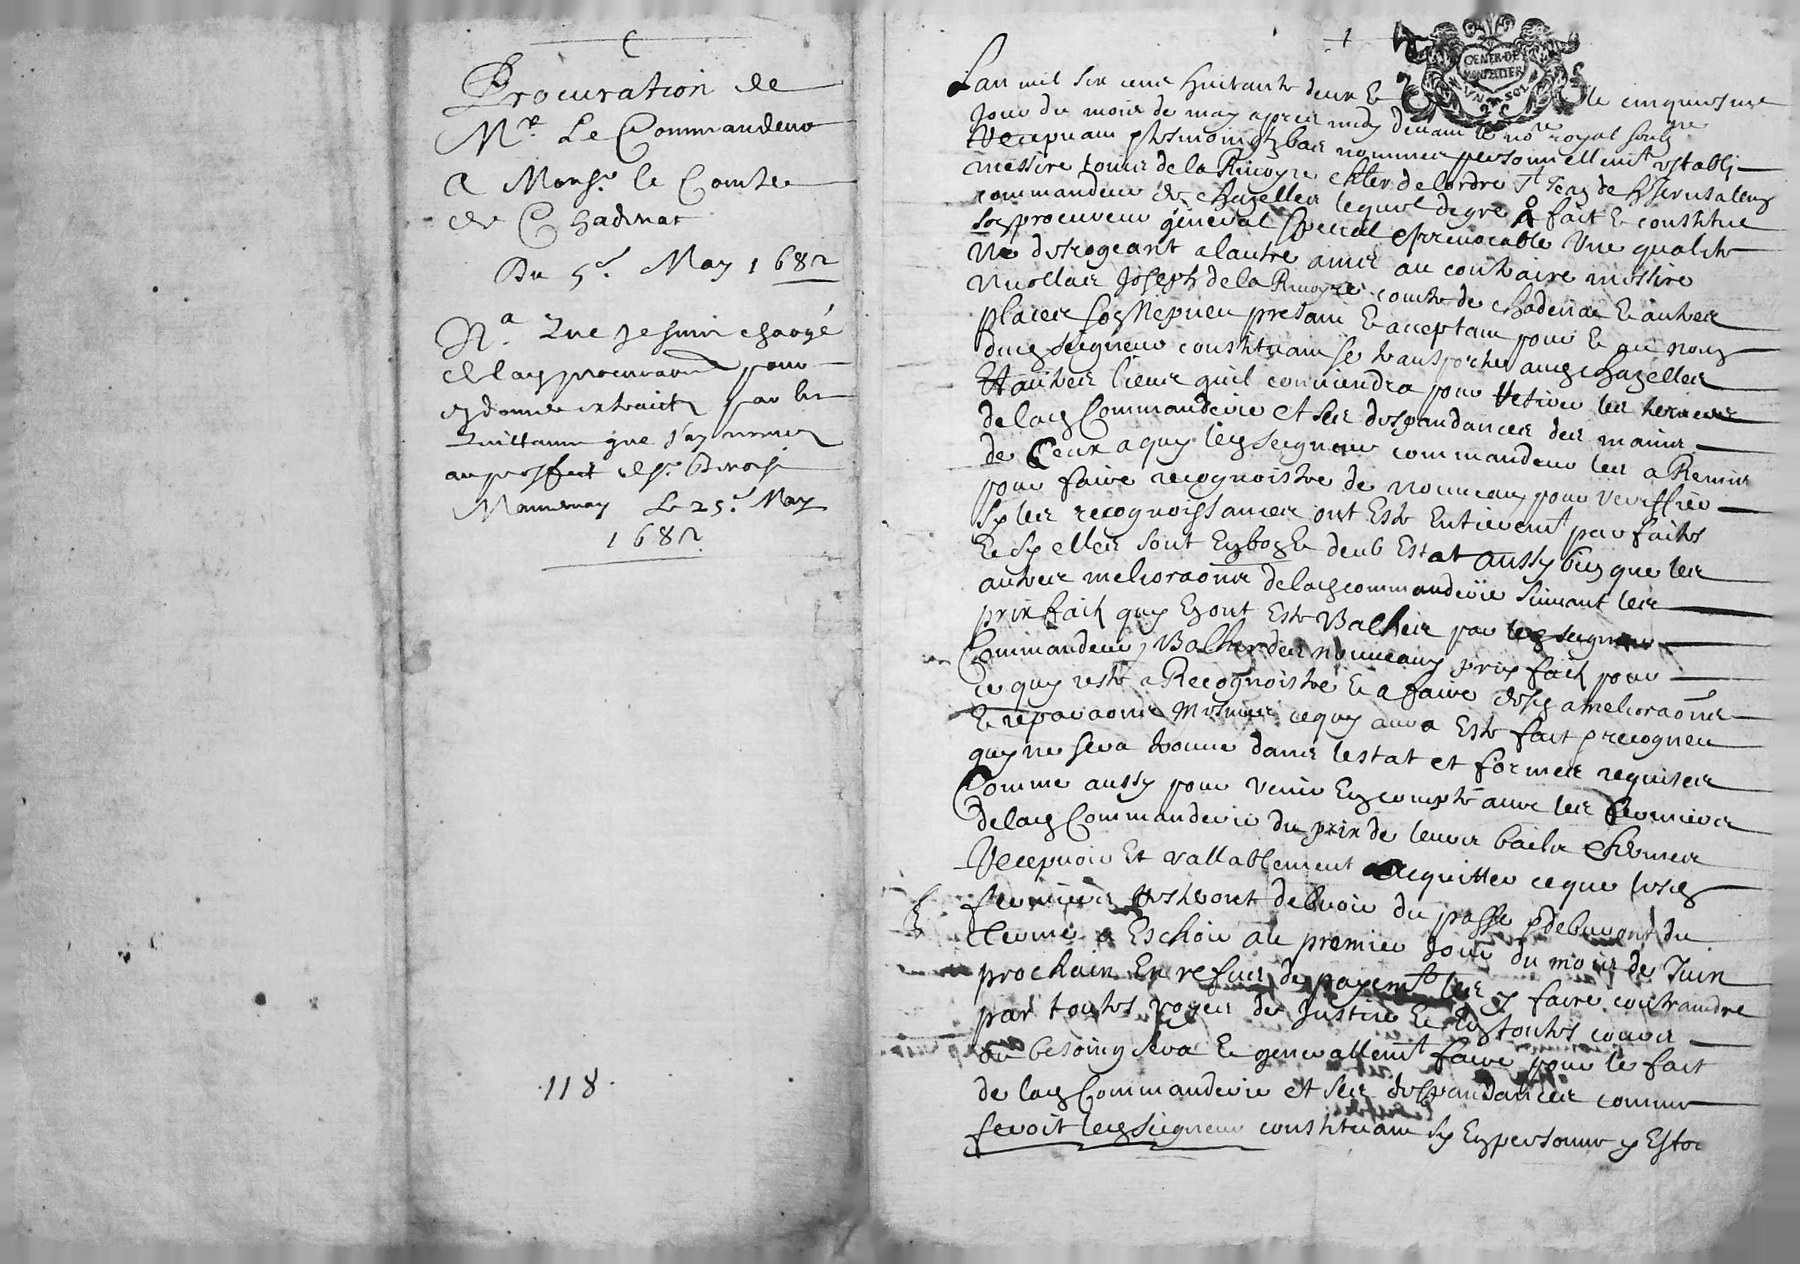 Procuration de
Mr. Le Commandeur
A Monsr. le Comte
de Chadenac
Du 5e. May 1682
Na. Que je suis chargé
de lad procuraon pour
en donner extraict par les
quittances que j'ay
au proffict de sr. Benoist
Le 25e. May
1682
118
1
GENER. DE
MONTPELLIER
VN SOL
L'an mil six cens huitante deux & le cinquiesme
Jour du mois de may apres midy devant le nore royal soubzne
personnellemt establi
messire Louis de la Rivoyre chler de lordre St Jean de Hierusalem
commandeur de Chazelles lequel de gre a fait & constitue
son procureur general special & irrevocable une qualite
ne derogeant a lautre au contraire messire
Nicollas Joseph de la Rivoyre comte de Chadenac & autres
places son Nepveu presant & acceptant pour & au nom
dud seigneur constituant se transporter aud Chazelles
et autres lieux quil conviendra pour retirer les terriers
de lad Commanderie et ses despandances des mains
de Ceux a quy led seigneur commandeur les a Remis
pour faire recognoistre de nouveau pour veriffier
sy les recognoissances ont este entieremt parfaites
& sy elles sont en bon & deub Estat aussy bien que les
autres melioraons de lad commanderie suivant les
prix faich quy en ont este Balhes par led seigneur
Commandeur, Balher des nouveaux prix faich pour
ce quy reste a Recognoistre & a faire desd amelioraons
& reparaons ce quy aura este fait & recogneu
quy ne sera trouve dans lestat et formes requises
Comme aussy pour venir en compte avec les fermiers
de lad Commanderie du prix de leurs bailx & fermes
Recepvoir et vallablement acquitter ce que lesd
fermiers de debvoir du passe & debvront du
Terme a Eschoir au premier Jour du mois de Juin
prochain En refus de payemt les y faire contraindre
par toutes voyes de Justice & en toutes cours
ou besoing sera & generallemt faire pour le fait
de lad Commanderie et ses despandances comme
feroit led seigneur constituant sy en personne y estoit